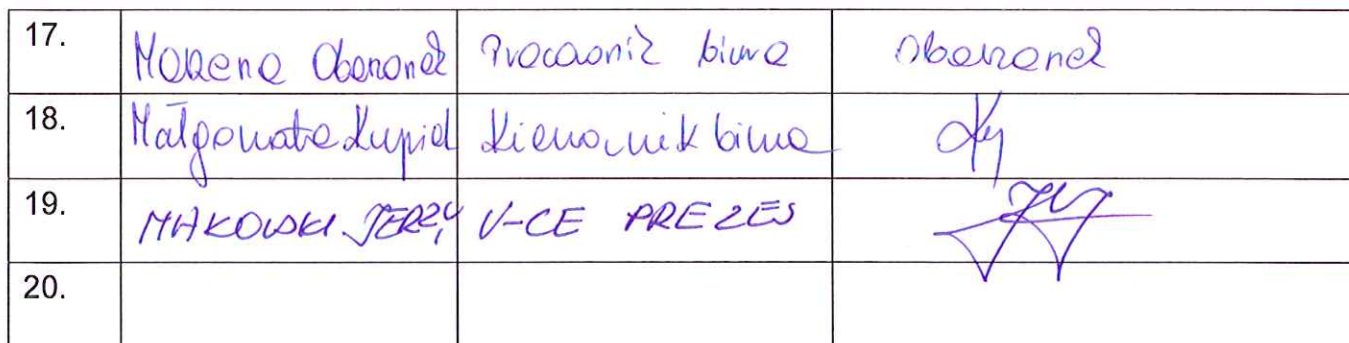 17. Marzena Obarzanek Pracownik biura Obarzanek
18. Małgorzata Kupiel Kierownik biura
19. MAKOWSKI JERZY V-CE PREZES
20.